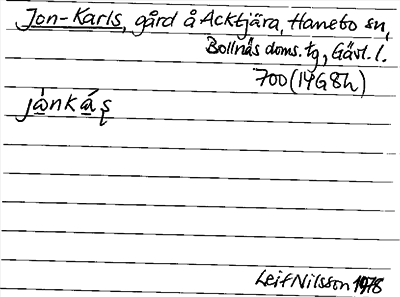 Jon-Karls, gård å Acktjära, Hanebo sn,
Bollnäs doms. tg, Gävl. l.
700 (14G8h)
jànkáʂ
Leif Nilsson 1978